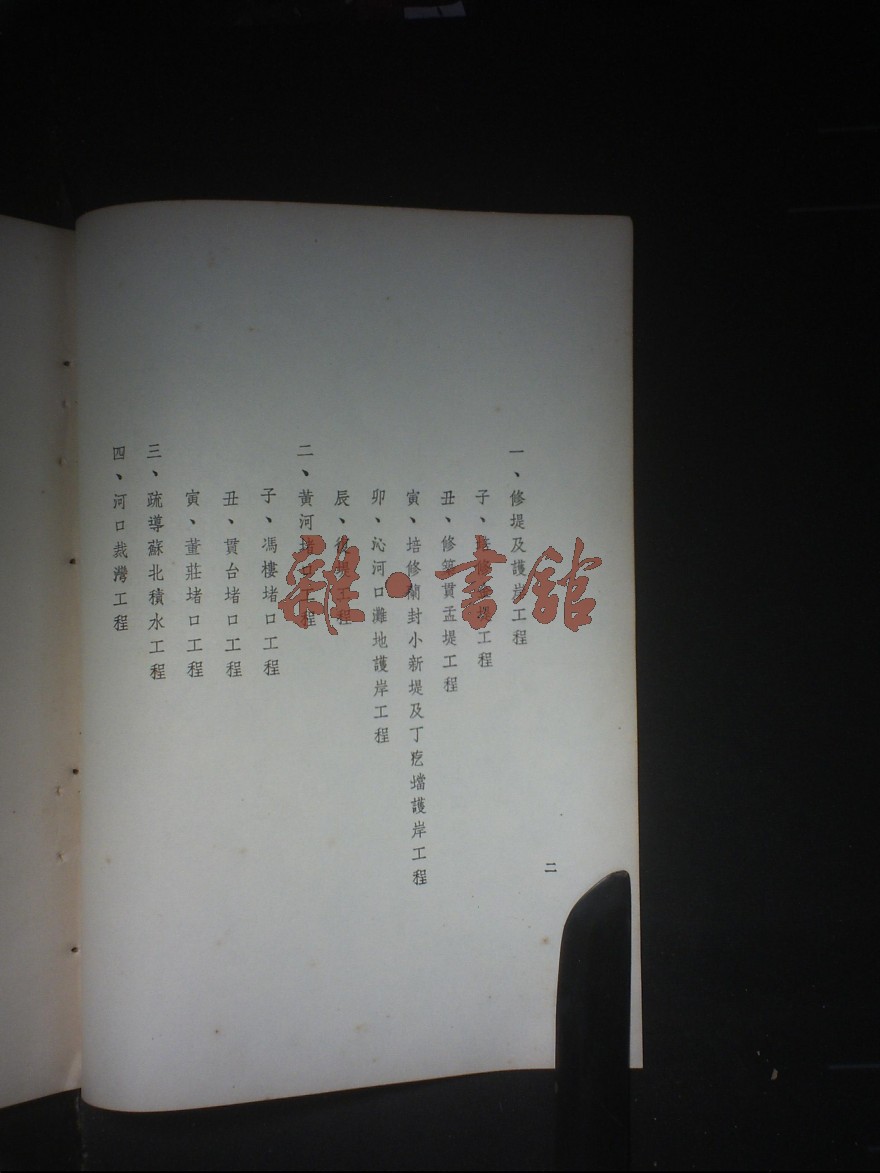 二
一、修堤及護岸工程
子、培修堤工程
丑、修築貫孟堤工程
寅、培修蘭封小新堤及丁疙壋護岸工程
卯、沁河口灘地護岸工程
辰、堤工程
二、黃河堵口工程
子、馮樓堵口工程
丑、貫台堵口工程
寅、董莊堵口工程
三、疏導蘇北積水工程
四、河口裁灣工程
雜·書館